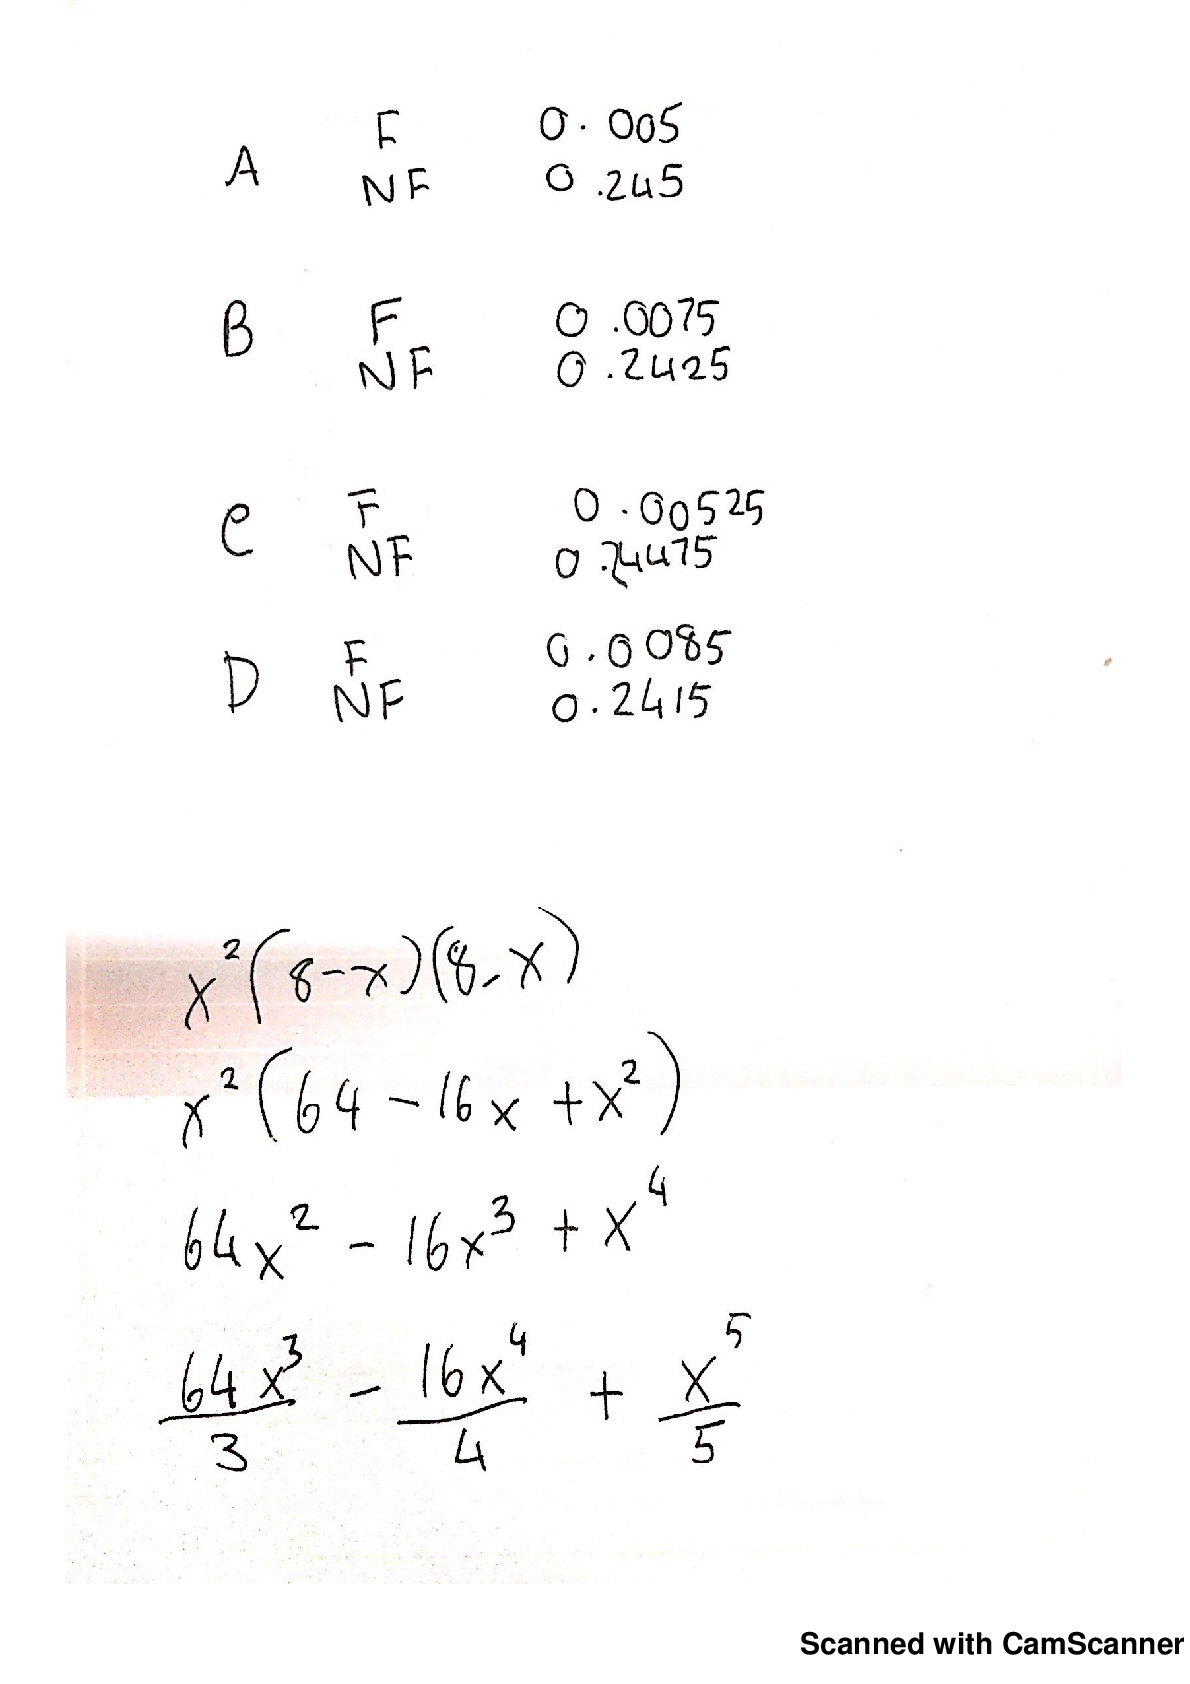 A F 0.005
NF 0.245
B F 0.0075
NF 0.2425
C F 0.00525
NF 0.24475
D F 0.0085
NF 0.2415
x²(8-x)(8-x)
x²(64-16x+x²)
64x² - 16x³ + x⁴
64x³/3 - 16x⁴/4 + x⁵/5
Scanned with CamScanner